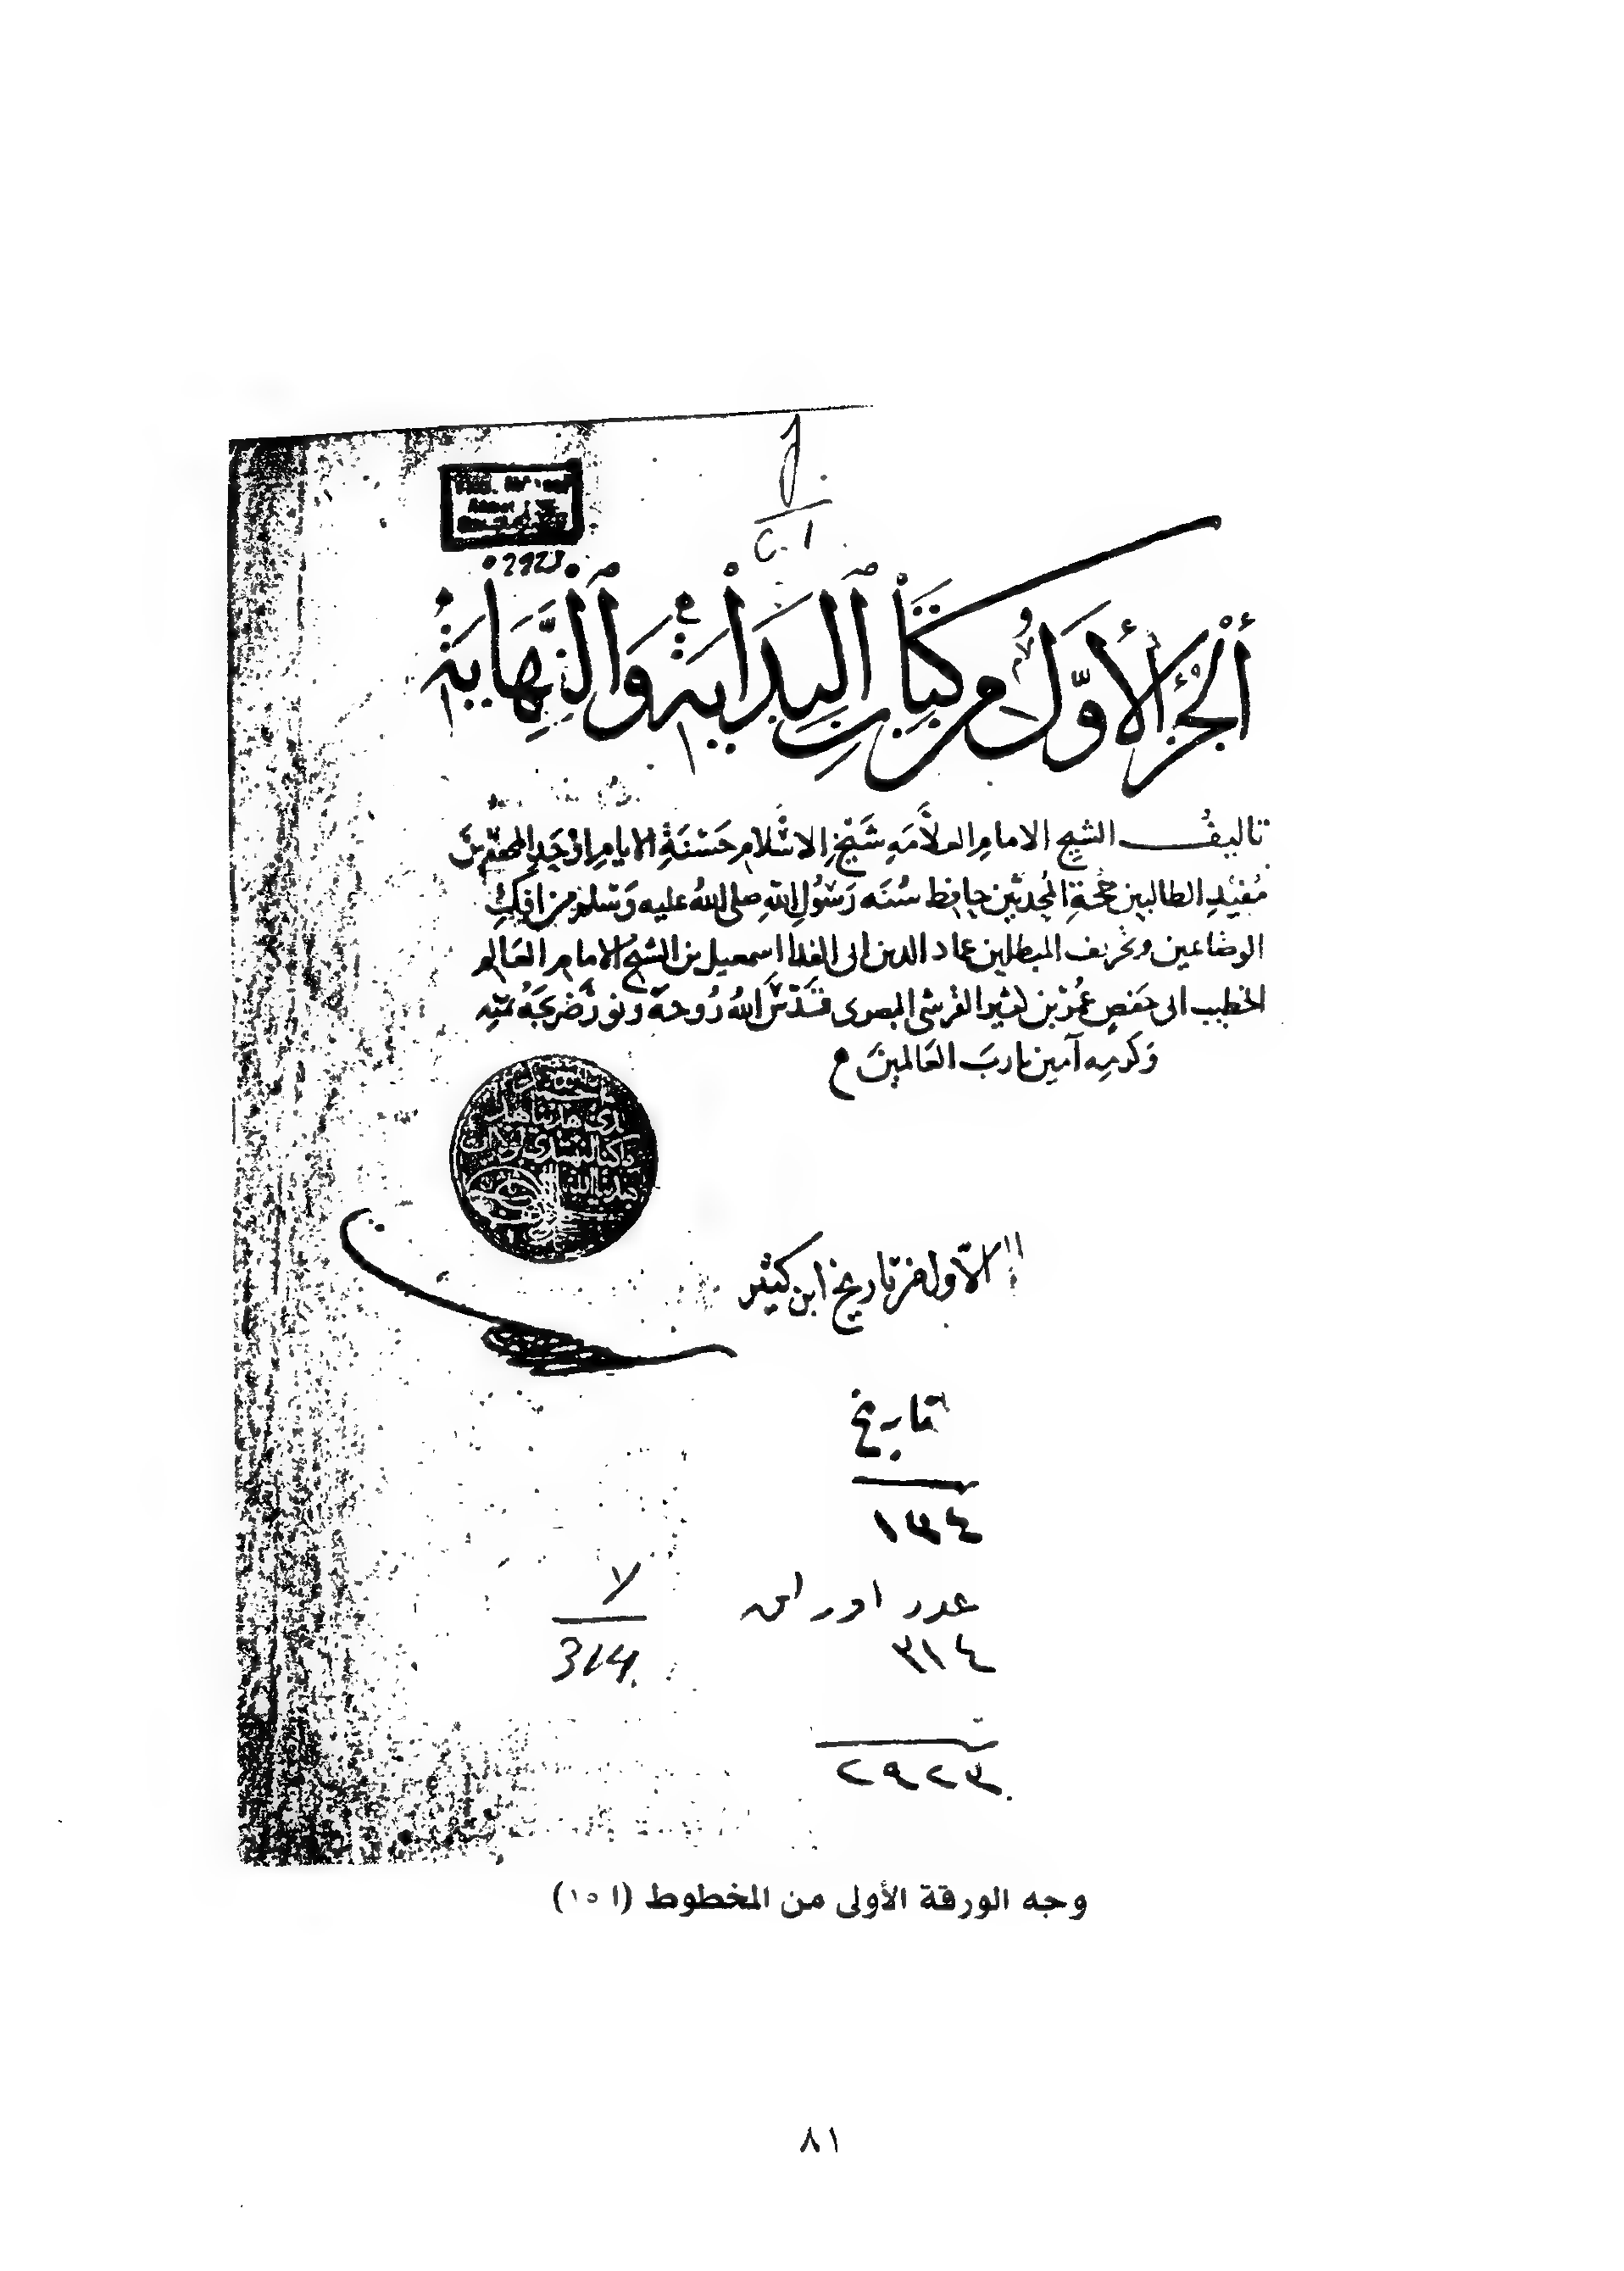 C. 1
02923
الجزء الأوّل من كتاب البداية والنهاية
تاليف الشيخ الامام العلامه شيخ الاسلام حسنة الايام اوحد المجتهدين
مفيد الطالبين حجة المحدثين حافظ سنه رسول الله صلى الله عليه وسلم من افك
الوضاعين وتحريف المبطلين عماد الدين ابى الفدا اسمعيل بن الشيخ الامام العالم
الخطيب ابى حفص عمر بن كثير القرشى البصروى قدس الله روحه ونور ضريحه بمنه
وكرمه آمين يارب العالمين
الحمد لله الذى هدانا لهذا
وما كنا لنهتدى لولا ان
هدانا الله
الاول من تاريخ ابن كثير
تاريخ
١٣٤
عدد اوراق
٣١٤
٧
314
٢٩٢٣
وجه الورقة الأولى من المخطوط (١ ١٥)
٨١